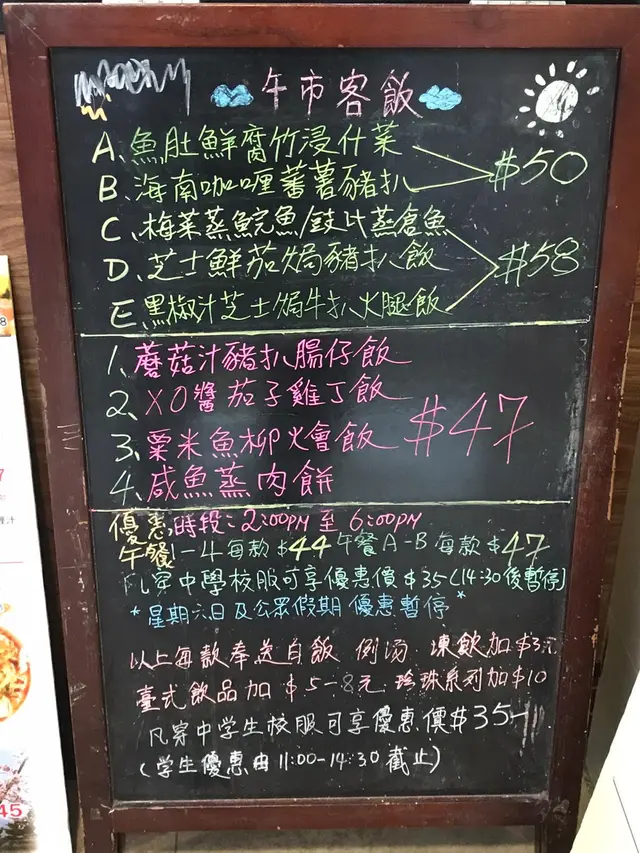 午市客飯
A、魚肚鮮腐竹浸什菜
B、海南咖喱蕃薯豬扒
$50
C、梅菜蒸鯇魚/豉汁蒸倉魚
D、芝士鮮茄焗豬扒飯
E、黑椒汁芝士焗牛扒火腿飯
$58
1、蘑菇汁豬扒腸仔飯
2、XO醬茄子雞丁飯
3、粟米魚柳火會飯
4、咸魚蒸肉餅
$47
優惠時段:2:00PM至6:00PM
午餐1-4每款$44午餐A-B每款$47
凡穿中學校服可享優惠價$35(14:30後暫停)
*星期六日及公眾假期 優惠暫停*
以上每款奉送白飯 例汤 凍飲加$3元
臺式飲品加$5-8元 珍珠系列加$10
凡穿中学生校服可享優惠價$35-
(学生優惠由11:00-14:30截止)
45